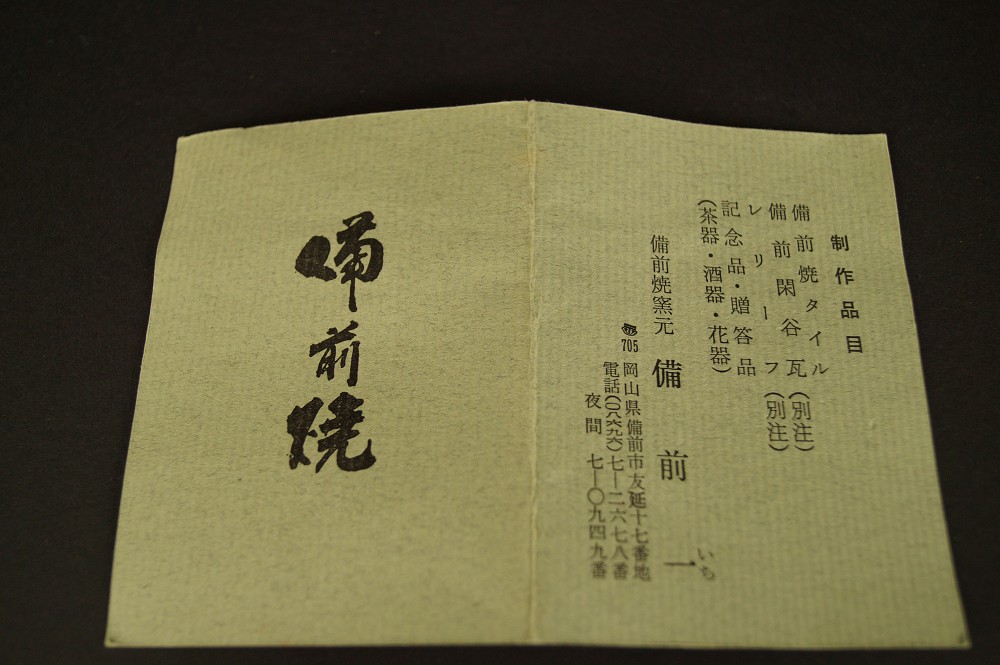 制作品目
備前焼タイル
備前閑谷瓦（別注）
レリーフ（別注）
記念品・贈答品
（茶器・酒器・花器）
備前焼窯元 備前一
いち
705 岡山県備前市友延十七番地
電話（〇八六九六）七―二六七八番
夜間 七―〇九四九番
備前焼